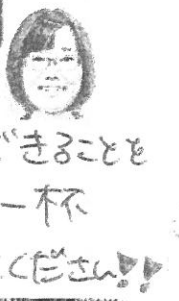 できることを
一杯
ください!!